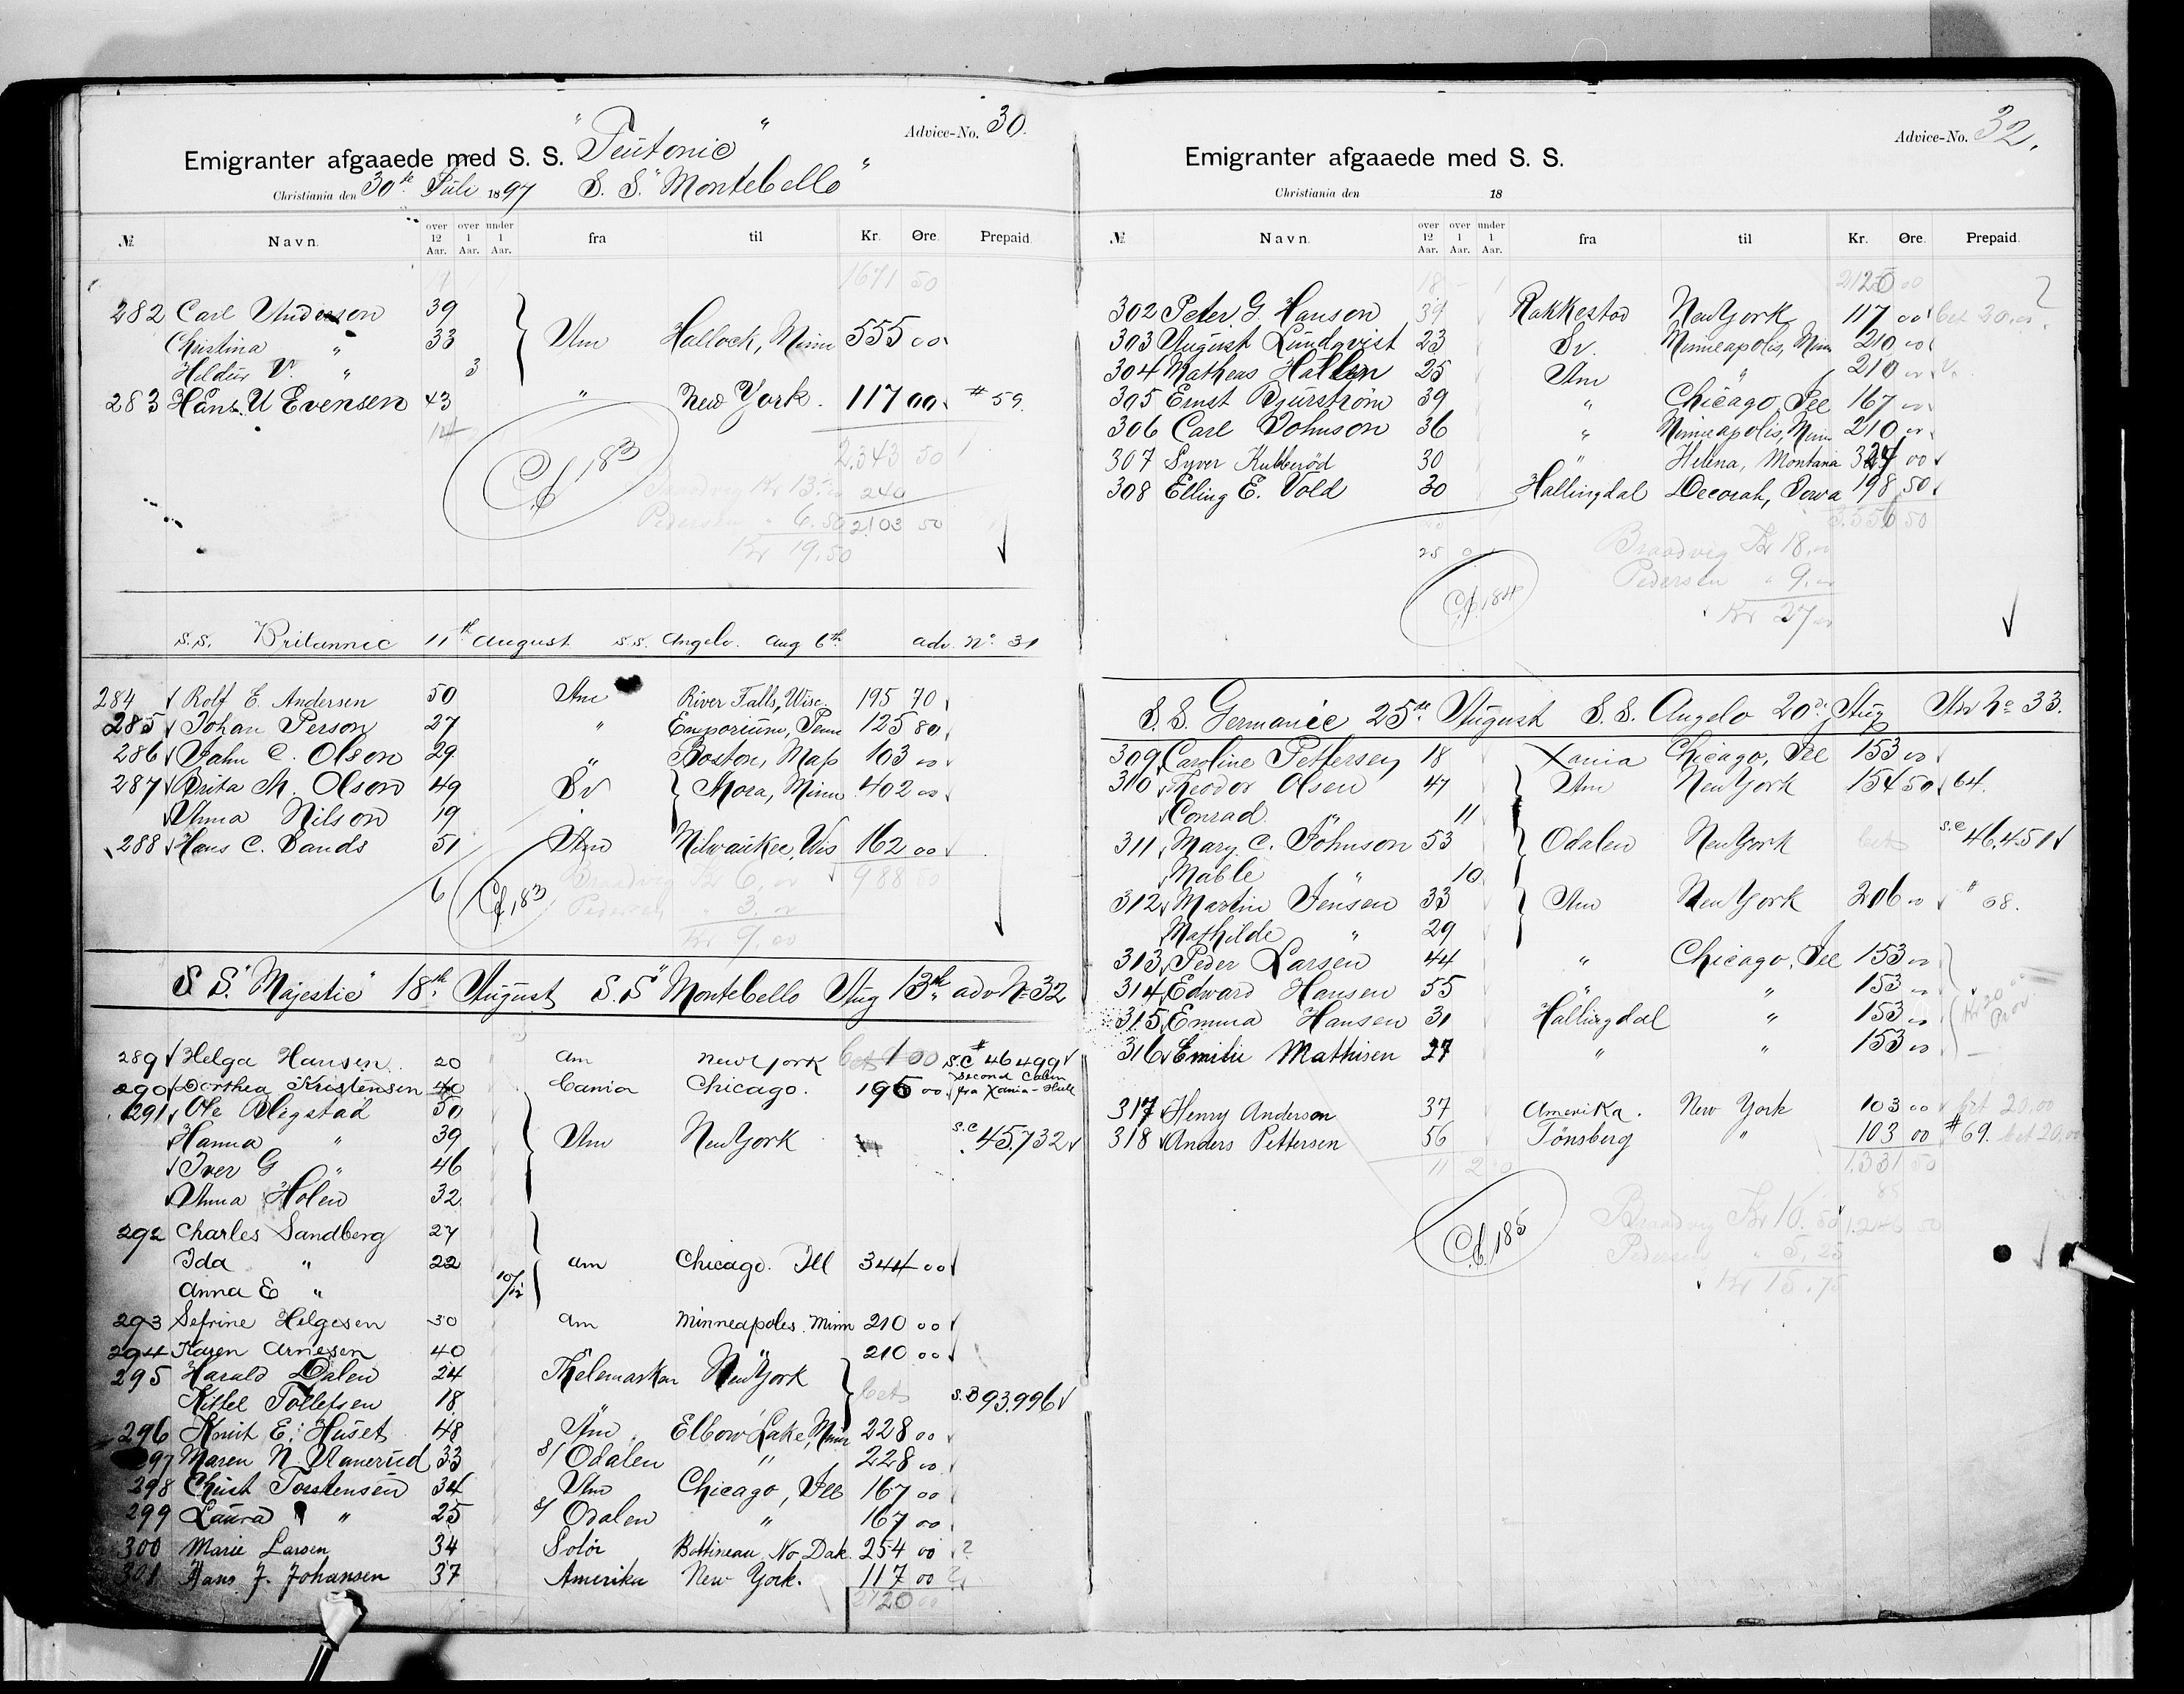 "Teutonic" Advice-No. 30.
Emigranter afgaaede med S. S.
Christiania den 30te Juli 1897 S. S. "Montebello"
№ Navn. over 12 Aar. over 1 Aar. under 1 Aar. fra til Kr. Øre. Prepaid.
1671 50
282 Carl Anderson 39
Christina " 33 Am Hallock, Minn 555 00
Hildur V. " 3
283 Hans U Evensen 43 " New York. 117 00 # 59.
14
2,343 50
Cf 183
Braadvig Kr 13.00 240
Pedersen " 6.50 2103 50
Kr 19.50
S.S. Britannic 11th August S.S. Angelo. Aug 6th adv. No. 31
284 Rolf E. Andersen 50 Am River Falls, Wisc. 195 70
285 Johan Person 27 " Emporium, Penn 125 80
286 John C. Olson 29 " Boston, Mass 103 00
287 Brita M. Olson 49 Sv Mora, Minn 402 00
Anna Nilson 19
288 Hans C. Sands 51 Am Milwaukee, Wis 162 00
6 Cf 183 Braadvig Kr 6,00 988 50
Pedersen " 3,00
Kr 9,00
S. S. "Majestic" 18th August S. S "Montebello Aug 13th adv No 32
289 Helga Hansen 20 Am New York bet 100 S.C # 46499
290 Dorthea Kristensen 40 Xania Chicago. 195 00 Second Cabin fra Xania-Hull
291 Ole Blegstad 50
Hanna " 39 Am New York S.C 45,732
Iver G " 46
Anna Holen 32
292 Charles Sandberg 27
Ida " 22 Am Chicago. Ill 344 00
Anna E " 10/12
293 Sefrine Helgesen 30 Am Minneapoles. Minn 210 00
294 Karen Arnesen 40 " " 210 00
295 Harald Dalen 24 Thelemarken New York bet
Kittel Tollefsen 18 S.B 93,996
296 Knut E. Huset 48 Am Elbow Lake, Minn 228 00
297 Maren N. Ranerud 33 S/ Odalen " 228 00
298 Christ Torstensen 34 Am Chicago, Ill 167 00
299 Laura " 25 S/ Odalen " 167 00
300 Marie Larsen 34 Solör Bottineau, No Dak. 254 00 ?
301 Hans J. Johansen 37 Amerika New York. 117 00 ?
2120 00
Advice-No. 32.
Emigranter afgaaede med S. S.
Christiania den 18
№ Navn. over 12 Aar. over 1 Aar. under 1 Aar. fra til Kr. Øre. Prepaid.
18 - 1 2120 00
302 Peter G. Hansen 39 Rakkestad New York 117 00 bet 20.00
303 August Lundqvist 23 Sv. Minneapolis, Minn 210 00
304 Matheus Hallen 25 Am " 210 00
305 Ernst Bjurström 39 " Chicago, Ill 167 00
306 Carl Johnson 36 " Minneapolis, Minn 210 00
307 Syver Kubberöd 30 " Helena, Montana 324 00
308 Elling E. Vold 30 Hallingdal Decorah, Iowa 198 50
3,556 50
25 0
Cf 184
Braadvig Kr 18,00
Pedersen " 9,00
Kr 27,00
S. S. Germanic 25th August S. S. Angelo 20de Aug Adv No 33.
309 Caroline Pettersen 18 Xania Chicago, Ill 153 00
310 Theodor Olsen 47 Am New York 154 50 64.
Conrad " 11
311 Mary C. Johnson 53 Odalen New York bet S.C 46,451
Mable " 10
312 Martin Jensen 33 Am New York 206 00 " 68.
Mathilde " 29
313 Peder Larsen 44 " Chicago, Ill 153 00
314 Edward Hansen 55 " " 153 00
315 Emma Hansen 31 Hallingdal " 153 00
316 Emilie Mathisen 27 " " 153 00
317 Henry Anderson 37 Amerika. New York 103 00 bet 20.00
318 Anders Pettersen 56 Tönsberg " 103 00 # 69. bet 20.00
11 2 0 1,331 50
85
Cf 185
Braadvig Kr 10.50 1,246 50
Pedersen " 5,25
Kr 15.75